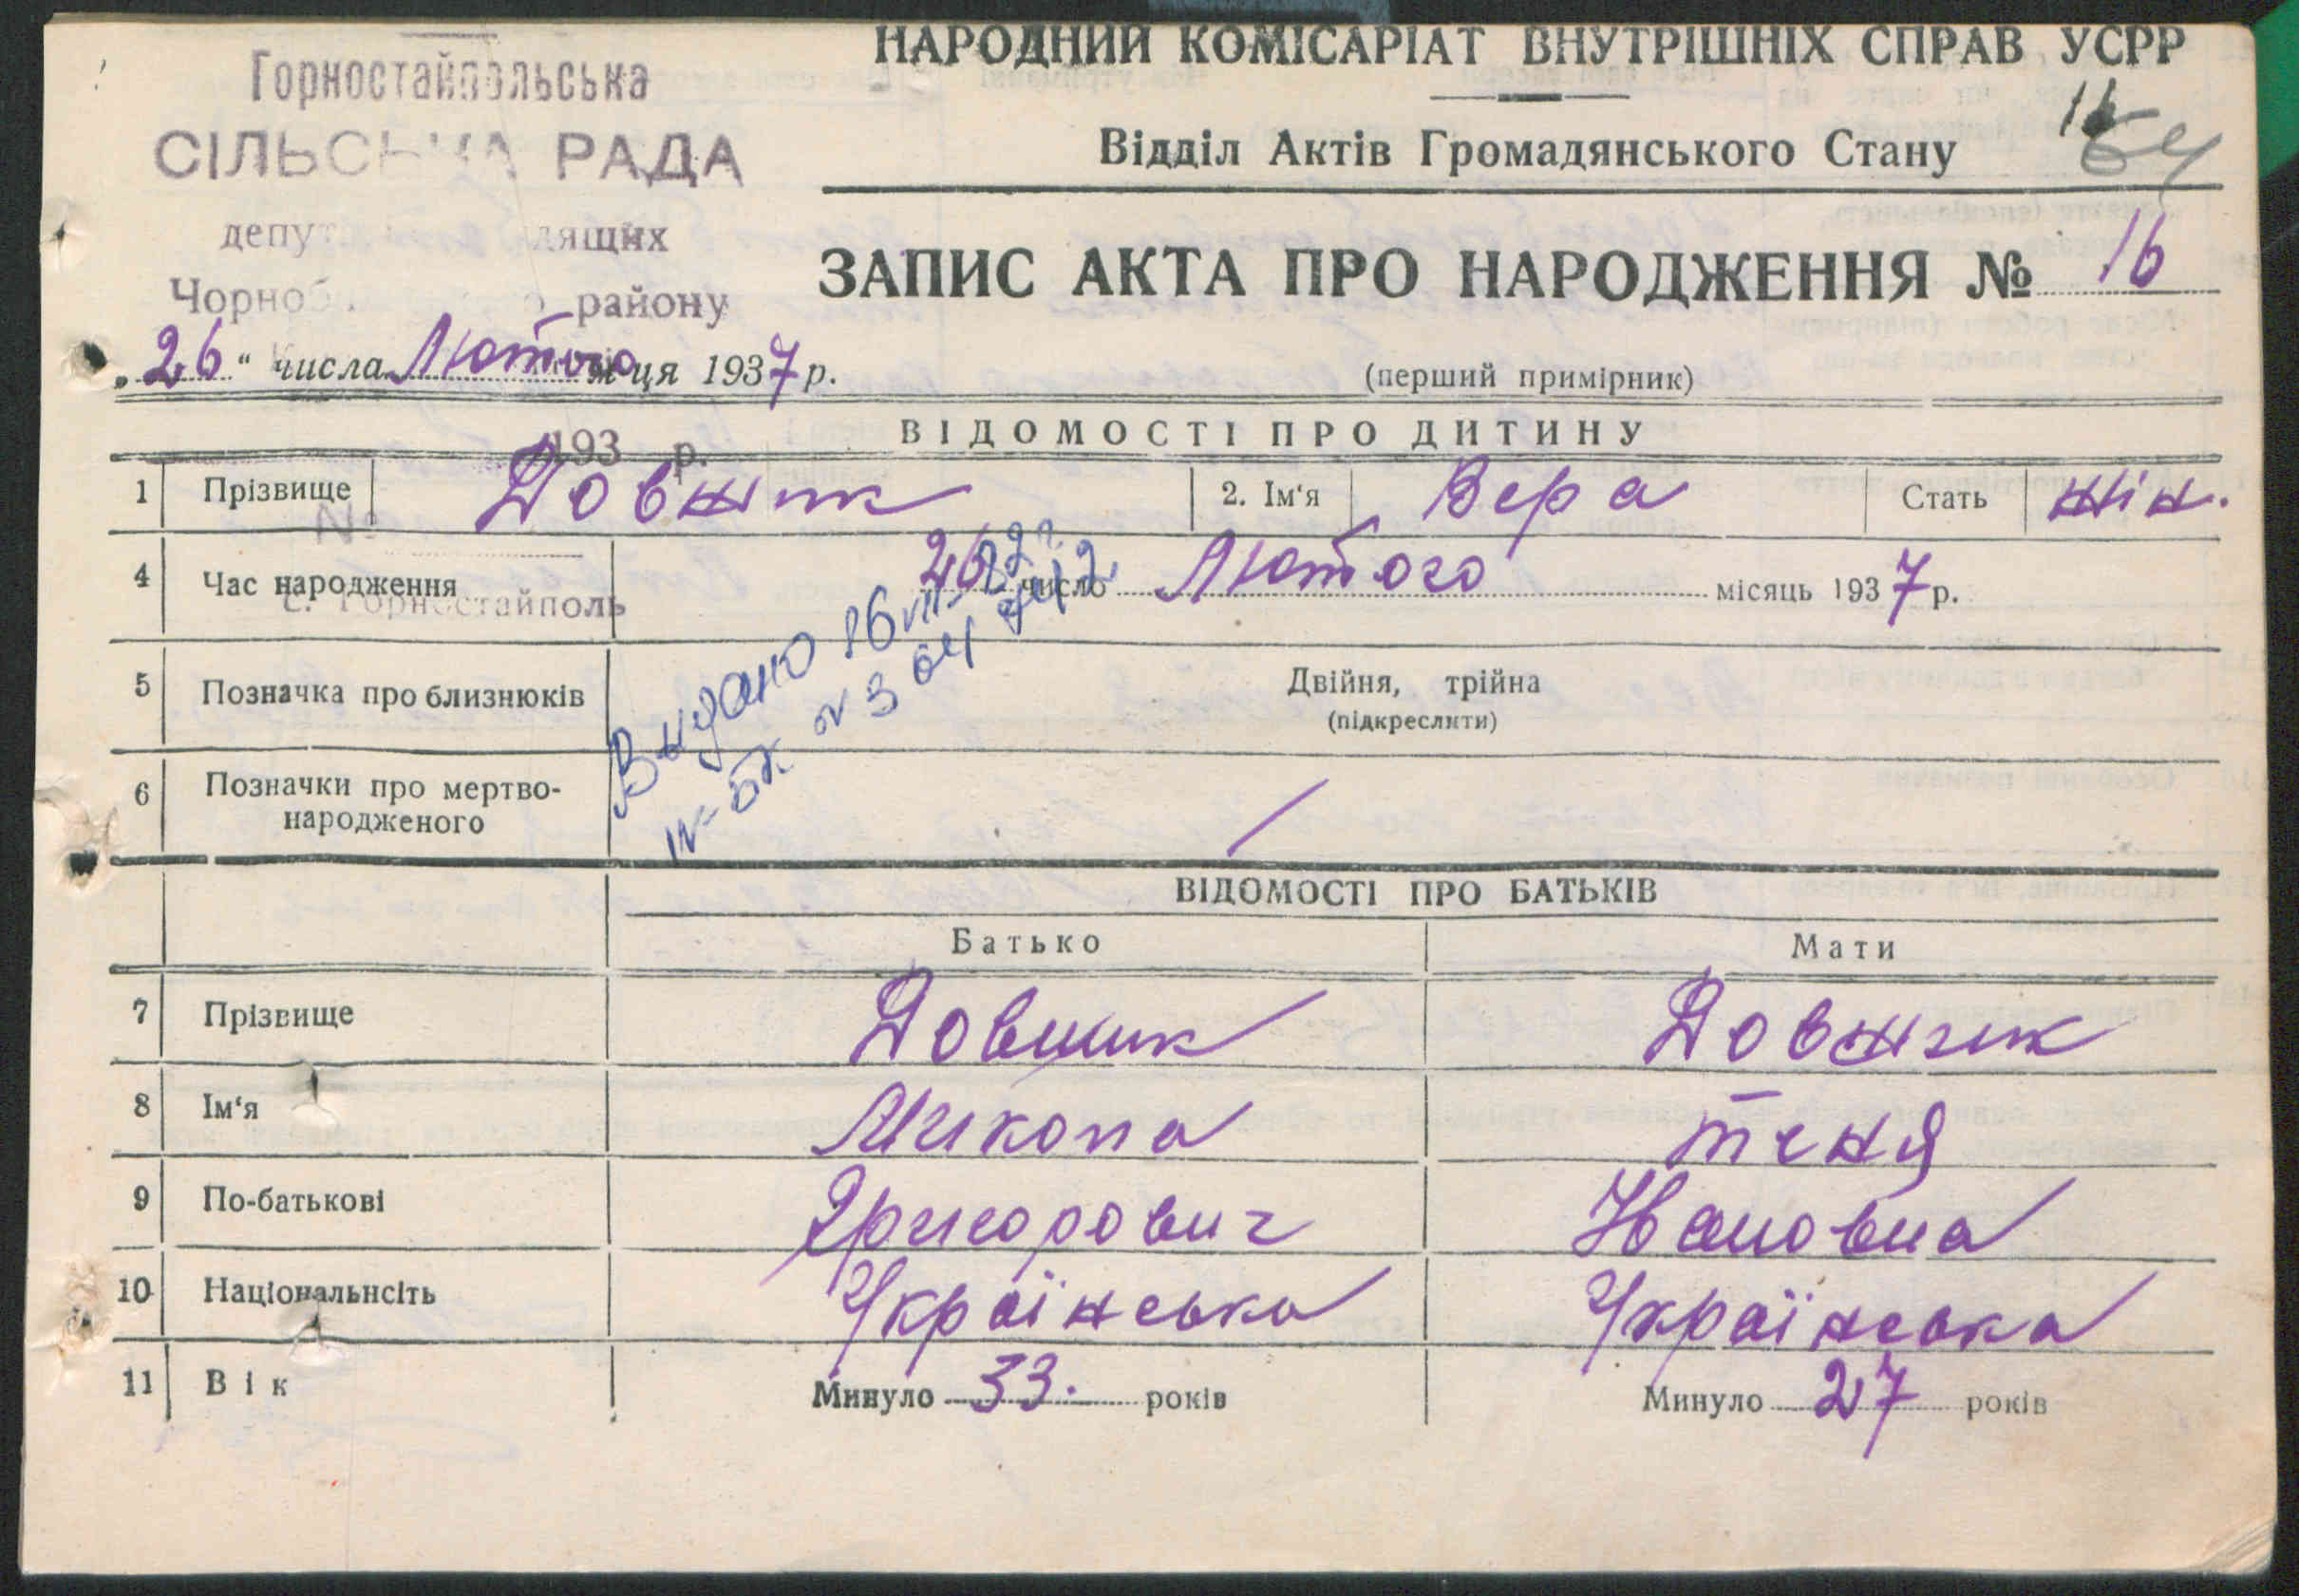 Горностайпольська
СІЛЬСЬКА РАДА
району
НАРОДНИЙ КОМІСАРІАТ ВНУТРІШНІХ СПРАВ УСРР
Відділ Актів Громадянського Стану
16
64
ЗАПИС АКТА ПРО НАРОДЖЕННЯ № 16
„26“ числа Лютого м-ця 1937 р.
(перший примірник)
193 р.
ВІДОМОСТІ ПРО ДИТИНУ
1 Прізвище Довжик 2. Ім‘я Вера Стать жін.
№
4 Час народження 26 число Лютого місяць 1937 р.
с. Горностайполь
5 Позначка про близнюків Двійня, трійна
(підкреслити)
Видано
6 Позначки про мертво-
народженого
ВІДОМОСТІ ПРО БАТЬКІВ
Батько Мати
7 Прізвище Довжик Довжик
8 Ім‘я Микола Теня
9 По-батькові Григорович Ивановна
10 Національнсіть Українська Українська
11 Вік Минуло 33. років Минуло 27 років